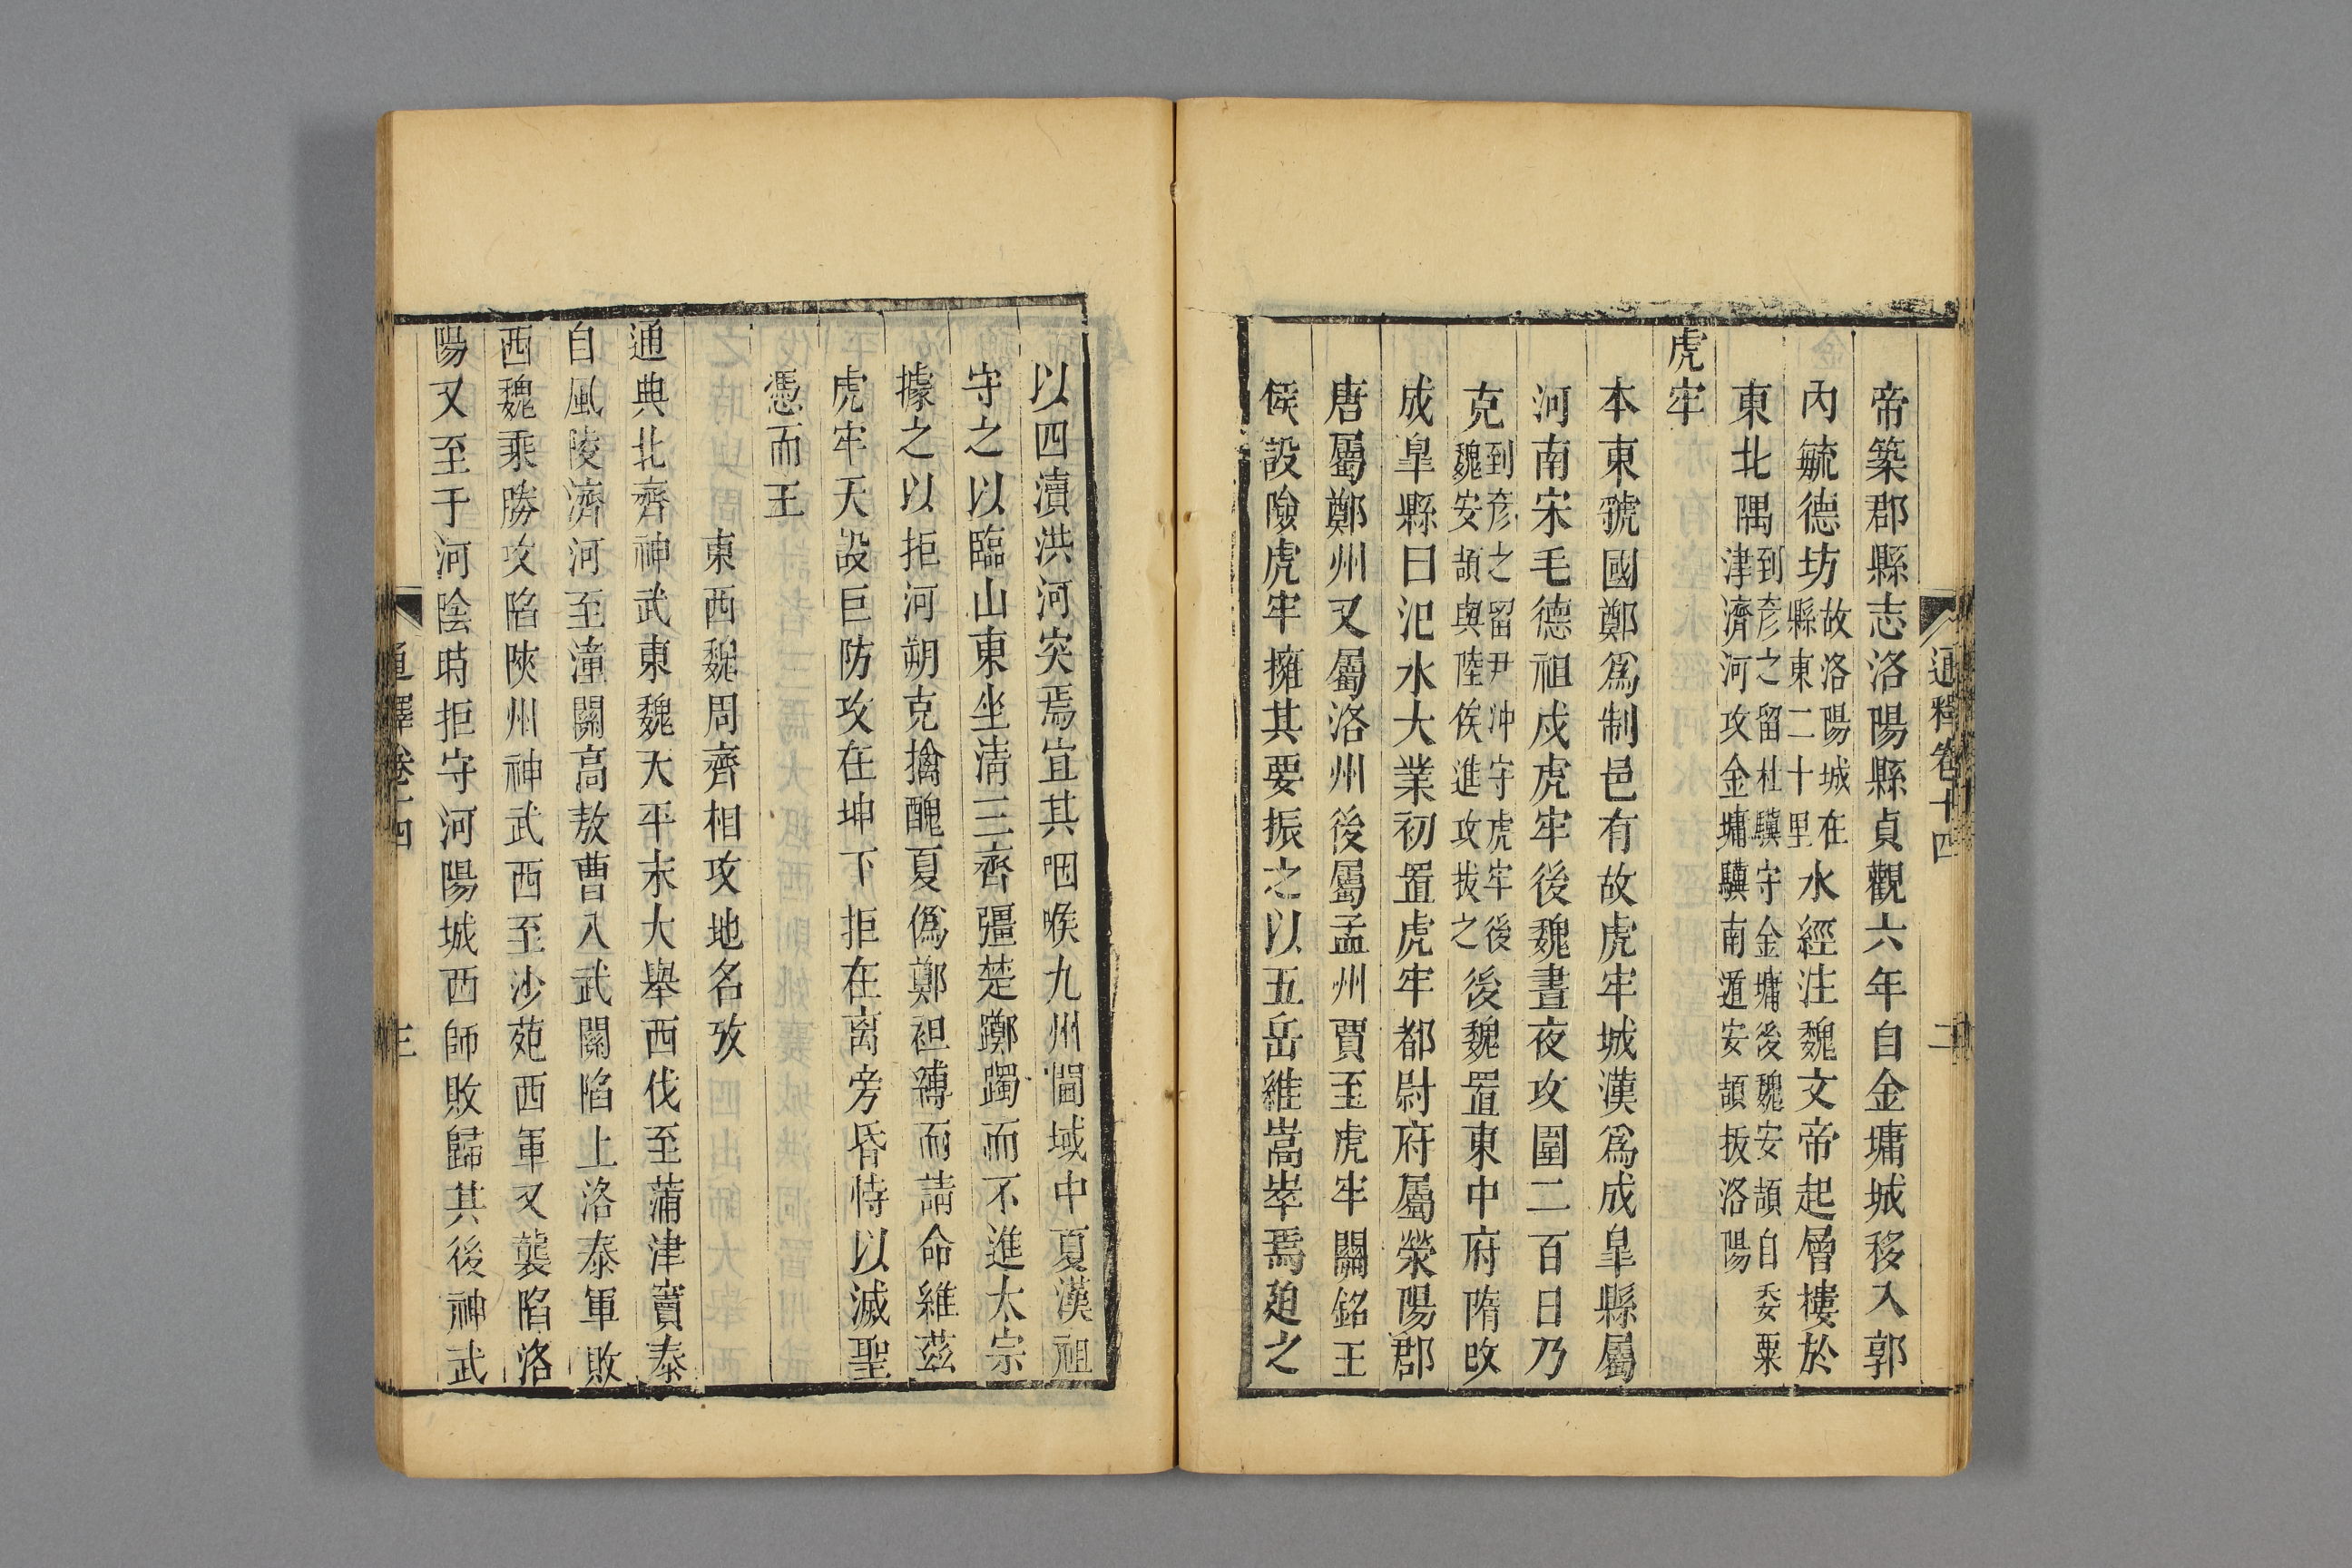 通釋卷十四
二
帝築郡縣志洛陽縣貞觀六年自金墉城移入郭
內毓德坊故洛陽城在縣東二十里水經注魏文帝起層樓於
東北隅到彥之留杜驥守金墉後魏安頡自委粟津濟河攻金墉驥南遁安頡拔洛陽
虎牢
本東虢國鄭爲制邑有故虎牢城漢爲成皐縣屬
河南宋毛德祖戍虎牢後魏晝夜攻圍二百日乃
克到彥之留尹沖守虎牢後魏安頡與陸俟進攻拔之後魏置東中府隋改
成皐縣曰汜水大業初置虎牢都尉府屬滎陽郡
唐屬鄭州又屬洛州後屬孟州賈至虎牢關銘王
侯設險虎牢擁其要振之以五岳維嵩崒焉廹之
以四瀆洪河突焉宜其咽喉九州閫域中夏漢祖
守之以臨山東坐清三齊彊楚躑躅而不進太宗
據之以拒河朔克擒醜夏僞鄭袒縛而請命維茲
虎牢天設巨防攻在坤下拒在离旁昏恃以滅聖
憑而王
東西魏周齊相攻地名攷
通典北齊神武東魏天平末大舉西伐至蒲津竇泰
自風陵濟河至潼關高敖曹入武關陷上洛泰軍敗
西魏乘勝攻陷陜州神武西至沙苑西軍又襲陷洛
陽又至于河陰時拒守河陽城西師敗歸其後神武
通釋卷十四
三